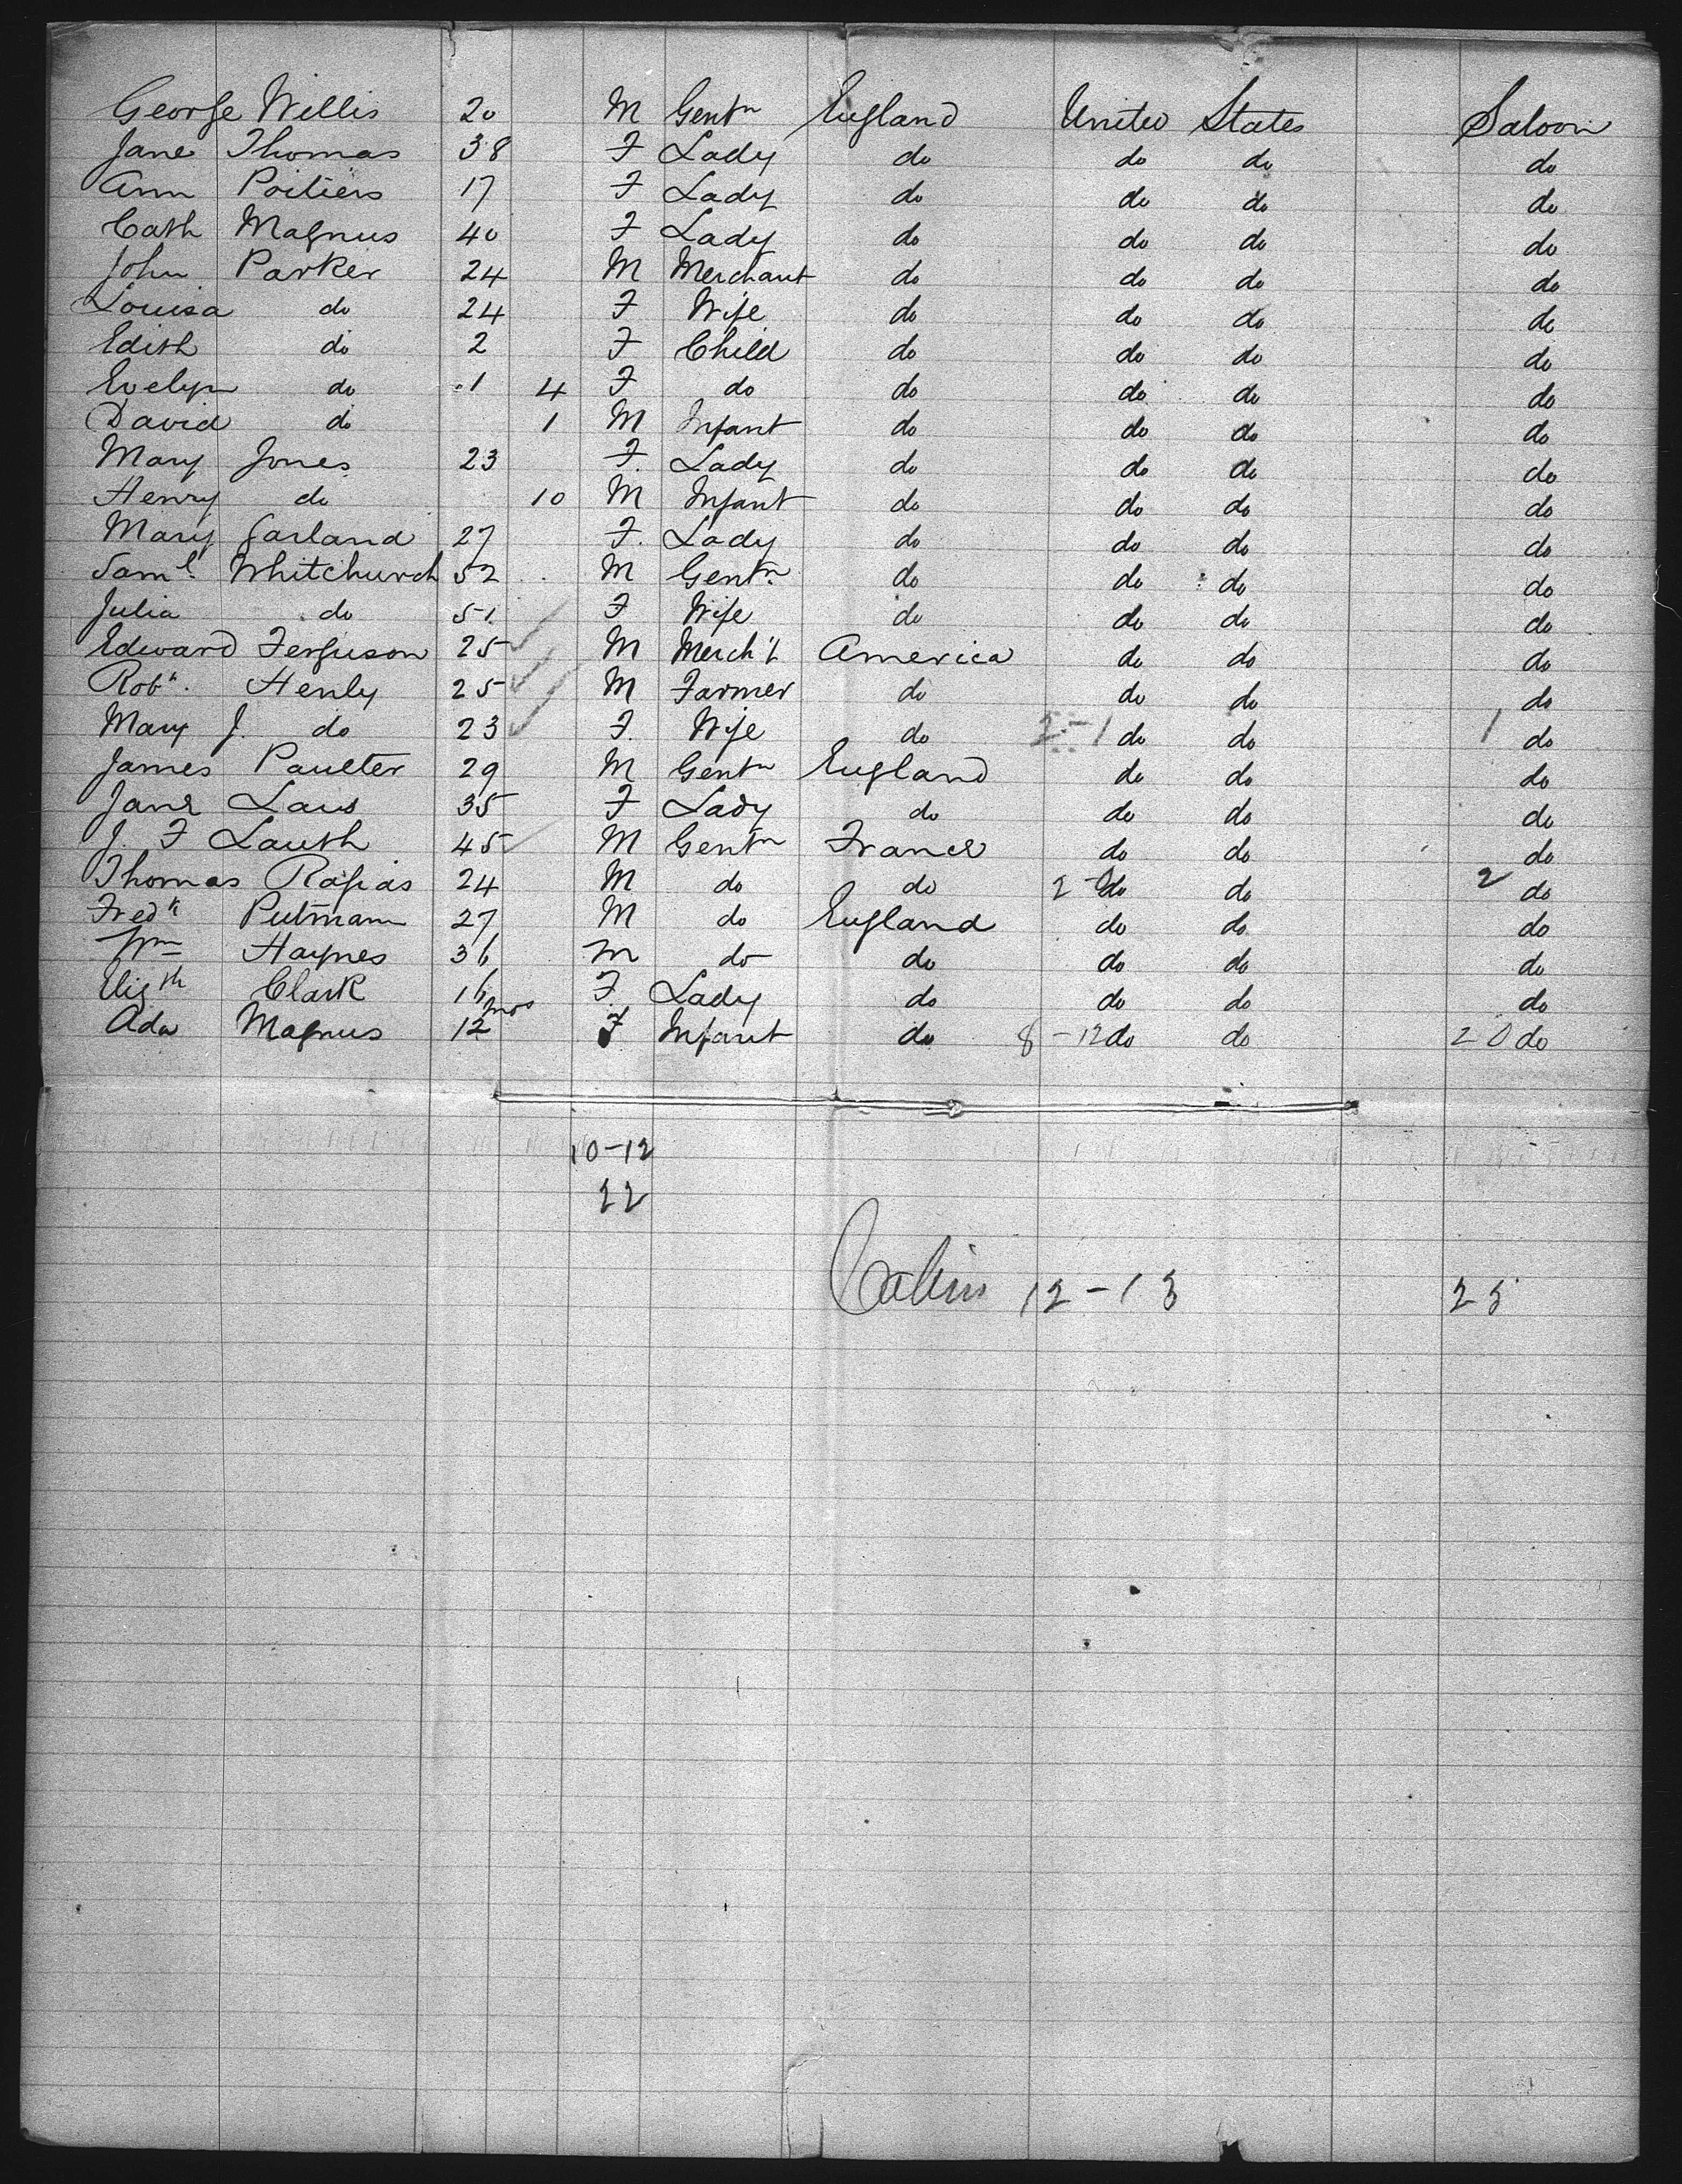 George Willis 20 M Gentn England United States Saloon
Jane Thomas 38 F Lady do do do do
Ann Poitiers 17 F Lady do do do do
Cath Magnus 40 F Lady do do do do
John Parker 24 M Merchant do do do do
Louisa do 24 F Wife do do do do
Edith do 2 F Child do do do do
Evelyn do 1 4 F do do do do do
David do 1 M Infant do do do do
Mary Jones 23 F. Lady do do do do
Henry do 10 M Infant do do do do
Mary Garland 27 F. Lady do do do do
Saml. Whitchurch 52 M Gentn. do do do do
Julia do 51. F Wife do do do do
Edward Ferguson 25 M Merch't America do do do
Robt. Henly 25 M Farmer do do do do
Mary J. do 23 F. Wife do 2-1 do do 1 do
James Paulter 29 M Gentn England do do do
Jane Laws 35 F Lady do do do do
J. F Lauth 45 M Gentn France do do do
Thomas 24 M do do do do 2 do
Fredk Putmann 27 M do England do do do
Wm Haynes 36 M do do do do do
Elizth Clark 16 F. Lady do do do do
Ada Magnus 12 mos F Infant do 8-12 do do 20 do
10-12
22
Cabin 12-13 25